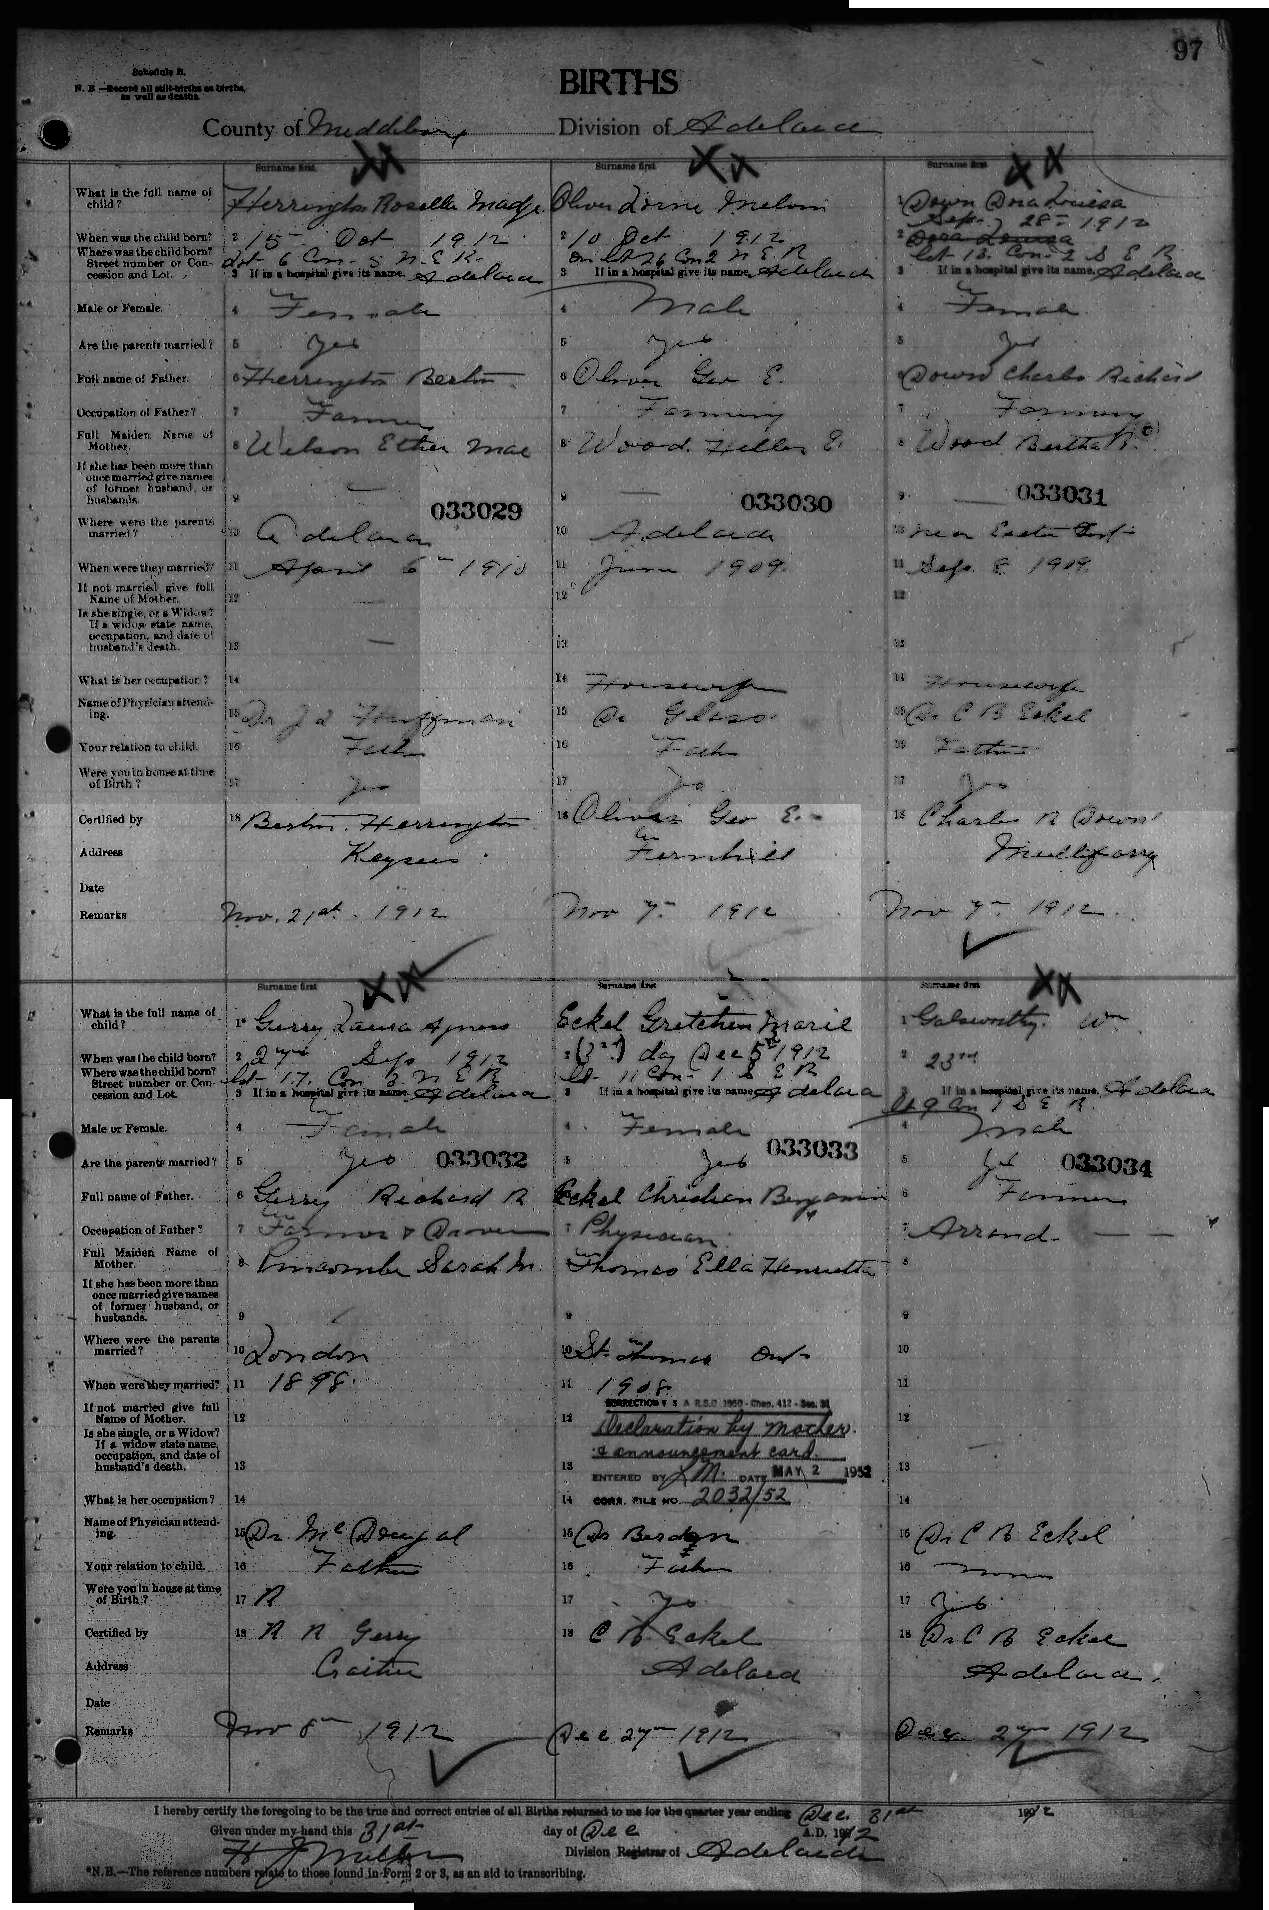 97
Schedule B.
N. B.—Record all still-births as births, as well as deaths.
BIRTHS
County of Middlesex Division of Adelaide
Surname first Surname first Surname first
What is the full name of child? Herrington Rosella Madge Oliver Lorne Melvin Down Dora Louisa
When was the child born? 2 15th Oct 1912 2 10 Oct 1912 2 Sep. 28th 1912
Dora Louisa
Where was the child born? Street number or Concession and Lot. Lot 6 Con. 5 N. E. R. on lot 26 Con 2 N E R lot 13. Con. 2 S E R
3 If in a hospital give its name. Adelaide 3 If in a hospital give its name. Adelaide 3 If in a hospital give its name. Adelaide
Male or Female. 4 Female 4 Male 4 Female
Are the parents married? 5 Yes 5 yes 5 yes
Full name of Father. 6 Herrington Berton 6 Oliver Geo E. 6 Down Charles Richard
Occupation of Father? 7 Farmer 7 Farming 7 Farming
Full Maiden Name of Mother. 8 Wilson Ether Mae 8 Wood. E. 8 Wood Bertha
If she has been more than once married give names of former husband, or husbands. 9 — 033029 9 — 033030 9 — 033031
Where were the parents married? 10 Adelaide 10 Adelaide 10 near
When were they married? 11 April 6th 1910 11 June 1909. 11 Sep. 8 1909.
If not married give full Name of Mother. 12 — 12 12
Is she single, or a Widow? If a widow state name, occupation, and date of husband's death. 13 — 13 13
What is her occupation? 14 14 Housewife 14 Housewife
Name of Physician attending. 15 Dr J Huffman 15 Dr Glass. 15 Dr C B Eckel
Your relation to child. 16 Father 16 Father 16 Father
Were you in house at time of Birth? 17 yes 17 yes 17 yes
Certified by 18 Berton. Herrington 18 Oliver Geo E. 18 Charles R Down
Address Keysers Fernhill Mullifarry
Date
Remarks Nov. 21st. 1912 Nov 7th 1912 Nov 7th 1912
Surname first Surname first Surname first
What is the full name of child? 1 Gerry Laura Agness Eckel Gretchen Marie 1 Galsworthy. Wm
When was the child born? 2 27th Sep 1912 2 (3rd) day Dec 5th 1912 2 23rd
Where was the child born? Street number or Concession and Lot. lot 17. Con 3 N E R lt. 11 Con. 1 S E R
3 If in a hospital give its name. Adelaide 3 If in a hospital give its name. Adelaide 3 If in a hospital give its name. Adelaide
Lt 9 Con 1 S E R
Male or Female. 4 Female 4 Female 4 Male
Are the parents married? 5 Yes 033032 5 Yes 033033 5 yes 033034
Full name of Father. 6 Gerry Richard R Eckel Christian Benjamin 6 Farmer
Occupation of Father? 7 Farmer & Drover 7 Physician 7 Arrand. — —
Full Maiden Name of Mother. 8 Pincombe Sarah M. Thomas Ella Henrietta 8
If she has been more than once married give names of former husband, or husbands. 9 9 9
Where were the parents married? 10 London 10 St. Thomas Ont 10
When were they married? 11 1898. 11 1908. 11
CORRECTION V S A R.S.O. 1950 - Chap. 412 - Sec. 31
If not married give full Name of Mother. 12 12 Declaration by mother 12
& announcement card.
Is she single, or a Widow? If a widow state name, occupation, and date of husband's death. 13 13 ENTERED BY J.M. DATE MAY 2 1952 13
What is her occupation? 14 14 CORR. FILE NO. 2032/52 14
Name of Physician attending. 15 Dr McDougal 15 Dr 15 Dr C B Eckel
Your relation to child. 16 Father 16 Father 16 none
Were you in house at time of Birth? 17 17 yes 17 yes
Certified by 18 R R Gerry 18 C B. Eckel 18 Dr C B Eckel
Address Adelaide Adelaide.
Date
Remarks Nov 8th 1912 Dec 27th 1912 Dec. 27th 1912
I hereby certify the foregoing to be the true and correct entries of all Births returned to me for the quarter year ending Dec. 31st 1912
Given under my hand this 31st day of Dec A.D. 1912
Division Registrar of Adelaide
*N.B.—The reference numbers relate to those found in Form 2 or 3, as an aid to transcribing.